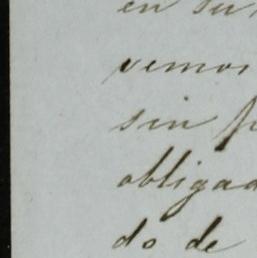 en su
vemos
sin
obligad
do de